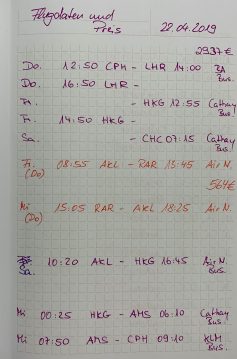 Flugdaten und
Preis 22.04.2019
2937€
Do. 12:50 CPH - LHR 14:00 BA Bus.
Do. 16:50 LHR -
Fr. - HKG 12:55 Cathay Bus.
Fr. 14:50 HKG -
Sa. - CHC 07:15 Cathay Bus.
Fr. 08:55 AKL - RAR 13:45 Air N.
(Do) 564€
Mi 15:05 RAR - AKL 18:25 Air N.
(Do)
Sa. 10:20 AKL - HKG 16:45 Air N. Bus.
Mi 00:25 HKG - AMS 06:10 Cathay Bus.
Mi 07:50 AMS - CPH 09:10 KLM Bus.